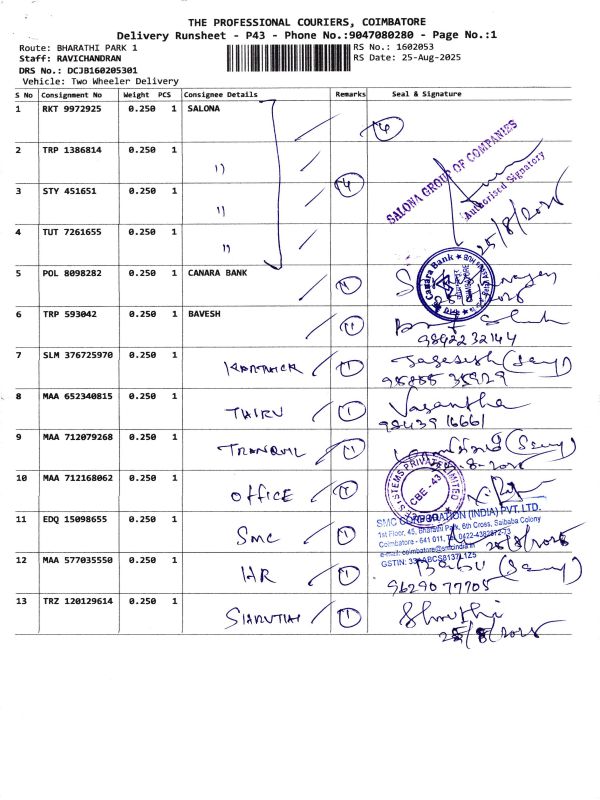 THE PROFESSIONAL COURIERS, COIMBATORE
Delivery Runsheet - P43 - Phone No.:9047080280 - Page No.:1
Route: BHARATHI PARK 1
RS No.: 1602053
Staff: RAVICHANDRAN
RS Date: 25-Aug-2025
DRS No.: DCJB160205301
Vehicle: Two Wheeler Delivery
S No Consignment No Weight PCS Consignee Details Remarks Seal & Signature
1 RKT 9972925 0.250 1 SALONA
SALONA GROUP OF COMPANIES
Authorised Signatory
2 TRP 1386814 0.250 1 11
3 STY 451651 0.250 1 11
4 TUT 7261655 0.250 1 11
25/8/2025
5 POL 8098282 0.250 1 CANARA BANK
Canara Bank
6 TRP 593042 0.250 1 BAVESH
9842232144
7 SLM 376725970 0.250 1 KARTHICK
8 MAA 652340815 0.250 1 THIRU
Vasantha
98439 16661
9 MAA 712079268 0.250 1 TRANQUIL
10 MAA 712168062 0.250 1 OFFICE
SYSTEMS PRIVATE LIMITED
CBE - 43
11 EDQ 15098655 0.250 1 SMC
SMC CORPORATION (INDIA) PVT. LTD.
1st Floor, 45, Bharathi Park, 6th Cross, Saibaba Colony
Coimbatore - 641 011,
e-mail: coimbatore@smcindia.in
25/8/2025
12 MAA 577035550 0.250 1 HR
Babu
96290 77705
13 TRZ 120129614 0.250 1
Shruthi
25/8/2025